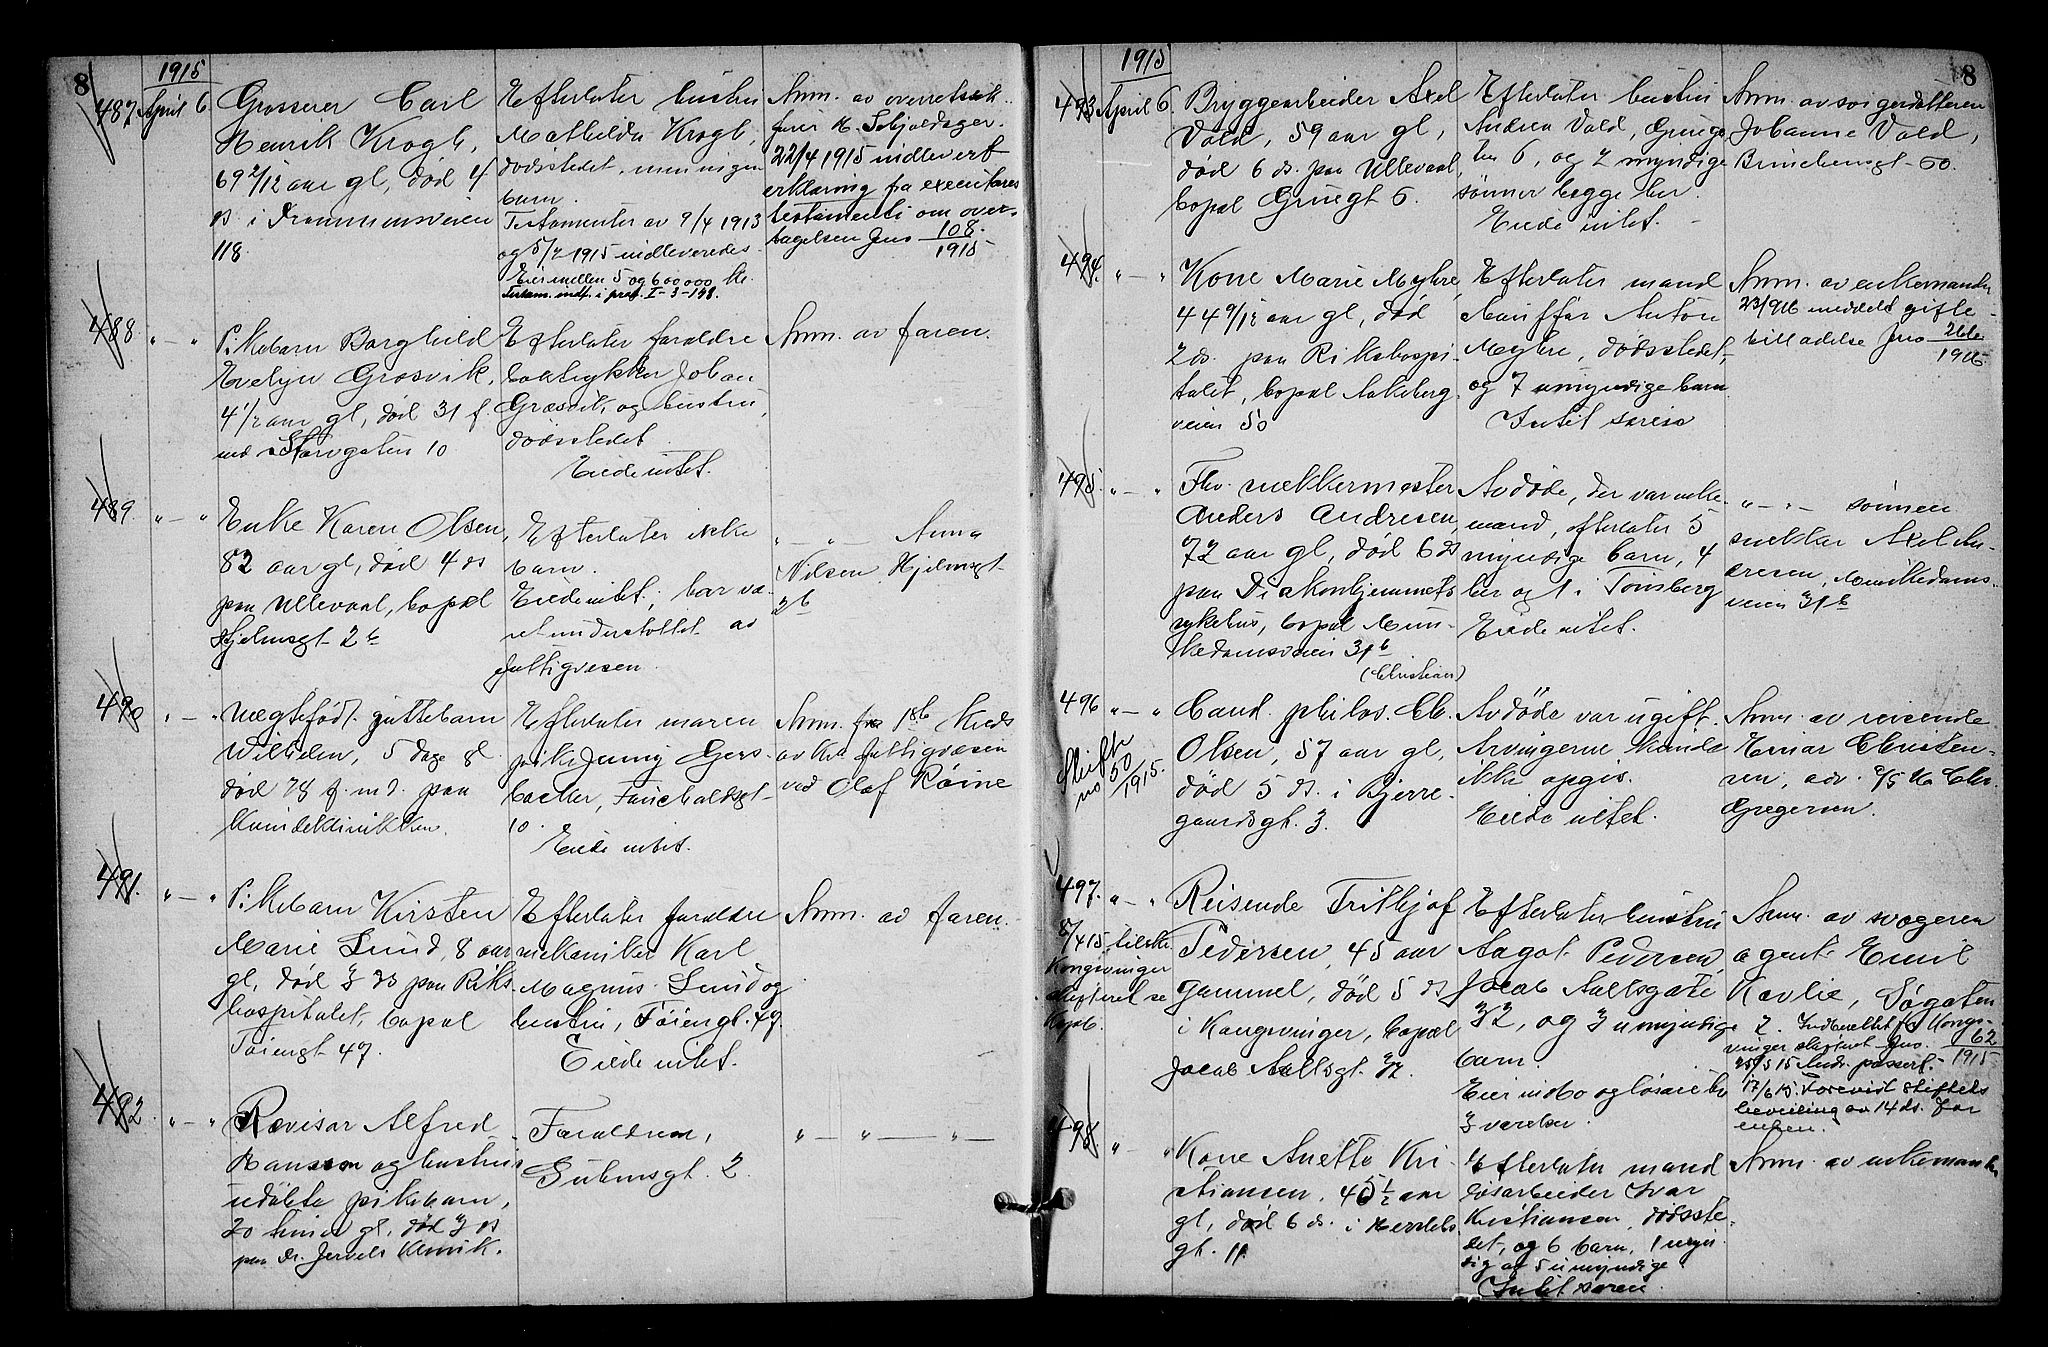 8
1915
487 April 6
Grosserer Carl
Henrik Krogh,
69 2/12 aar gl, død 4
ds. i Drammensveien
118.
Efterlater hustru
Mathilda Krogh,
dødsstedet, men ingen
barn.
Testamenter av 9/4 1913
og 5/2 1915 indleveredes.
Eier mellen 5 og 600000 kr.
Testam. indf. i prot. I-3-148.
Anm. av overretssak-
fører H. Schjoldager.
22/4 1915 indlevert
erklæring fra executores
testamenti om over-
tagelsen Jno 108/1915
488. " — "
Pikebarn Borghild
Evelyn Græsvik,
4 1/2 aar gl, død 31 f.
md Storgaten 10
Efterlater forældre
boktrykker Johan
Græsvik og hustru,
dødsstedet.
Eiede intet.
Anm. av faren.
489. " — "
Enke Karen Olsen,
82 aar gl, død 4 ds
paa Ullevaal, bopæl
Hjelmsgt 2 b
Efterlater ikke
barn.
Eiede intet; har væ-
ret understøttet av
fattigvæsen.
" — " Anna
Nilsen, Hjelmsgt
2b
490 " — "
Uægtefødt guttebarn
Wilhelm, 5 dage gl
død 28 f. md. paa
Kvindeklinikken.
Efterlater moren
pike Jenny Gers-
backer, Fauchaldsgt
10.
Eiede intet.
Anm. fra 1ste Kreds
av Kra fattigvæsen
ved Olaf Röine
491. " — "
Pikebarn Kirsten
Marie Lund, 8 aar
gl, død 3 ds paa Riks-
hospitalet, bopæl
Tøiengt 47.
Efterlater forældre
mekaniker Karl
Magnus Lund og
hustru, Tøiengt. 47.
Eiede intet.
Anm. av faren.
482. " — "
Revisor Alfred
Hansson og hustrus
udøbte pikebarn,
20 timer gl, død 3 ds
paa Dr. Jervels klinik.
Forældrene,
Gabelsgt. 2.
" — " — " —
8
1915
493 April 6.
Bryggearbeider Axel
Vold, 59 aar gl,
død 6 ds. paa Ullevaal,
bopæl Gruegt 6.
Efterlater hustru
Andrea Vold, Gruega-
ten 6, og 2 myndige
sønner begge her.
Eiede intet.
Anm. av svigerdatteren
Johanne Vold,
Brinchensgt 60.
494. " — "
Kone Marie Myhre
44 9/12 aar gl, død
2 ds. paa Rikshospi-
talet, bopæl Aakeberg-
veien 50
Efterlater mand
chauffør Anton
Myhre, dødsstedet,
og 7 umyndige barn
Intet særeie
Anm. av enkemanden
23/9 16 meddelt gifte-
tilladelse Jno 266/1916
495. " — "
Fhv. snekkermester
Anders Andresen,
72 aar gl, død 6 ds
paa Diakonhjemmets
sykehus, bopæl Mun-
kedamsveien 31 b
Avdøde, der var enke-
mand, efterlater 5
myndige barn, 4
her og 1 i Tønsberg
Eiede intet.
" — " — sønnen
snekker Axel An-
dresen, Munkedams-
veien 31 b
(Christian)
496 " — "
Skifte
no 50/1915.
Cand. philos. Ch.
Olsen, 57 aar gl,
død 5 ds. i Bjerre-
gaardsgt. 3.
Avdøde var ugift.
Arvingerne kunde
ikke opgis.
Eiede intet.
Anm. av reisende
Einar Christen-
sen, adr. A/S H. Chr.
Gregersen.
497. " — "
8/4 15 tilskr.
Kongsvinger
skifteret se
kopb.
Reisende Fritjhof
Pedersen, 45 aar
gammel, død 5 ds
i Kongsvinger, bopæl
Jacob Aallsgt. 32.
Efterlater hustru
Aagot Pedersen,
Jacob Aallsgate
32, og 3 umyndige
barn.
Eier indbo og løsøre i
3 værelser.
Anm. av svogeren
agent Emil
Havlie, Søgaten
2. Indberettet fra Kongs-
vinger skifteret Jno. 62/1915
25/5 15 Andr. passert.
17/6 15. Forevist skiftets
bevilling av 14 ds. for
enken.
498. " — "
Kone Anette Kri-
stiansen, 45 1/2 aar
gl, død 6 ds. i Herslebs
gt. 11.
Efterlater mand
løsarbeider Ivar
Kristiansen, dødsste-
det, og 6 barn, 1 myn-
dig og 5 umyndige
Intet særeie.
Anm. av enkemanden